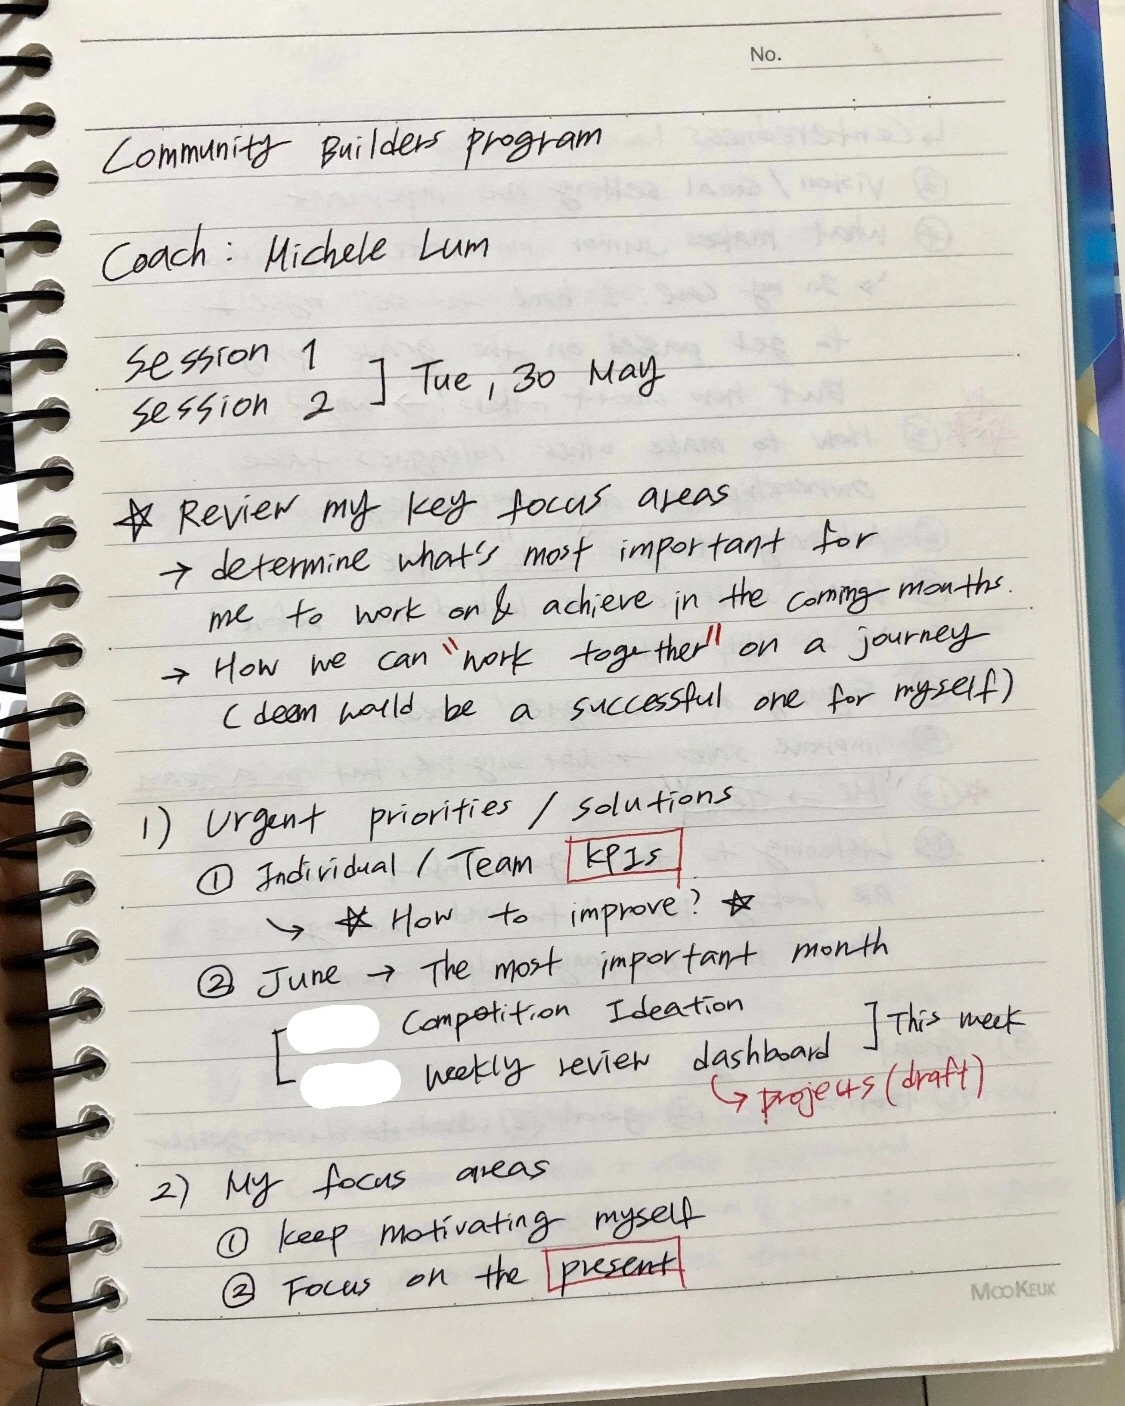 No.
Community Builders program
Coach : Michele Lum
Session 1
Session 2 ] Tue, 30 May
☆ Review my key focus areas
→ determine what's most important for
me to work on & achieve in the coming months.
→ How we can "work together" on a journey
(deem would be a successful one for myself)
1) Urgent priorities / solutions
① Individual / Team KPIs
↳ ☆ How to improve? ☆
② June → The most important month
[ Competition Ideation
Weekly review dashboard ] This week
↳ projects (draft)
2) My focus areas
① keep motivating myself
② Focus on the present
MOOKEUK